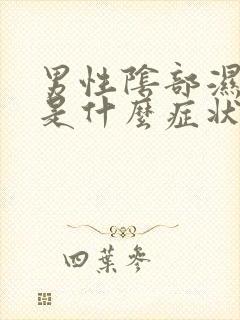 男性陰部濕
是什麼症狀
四葉參